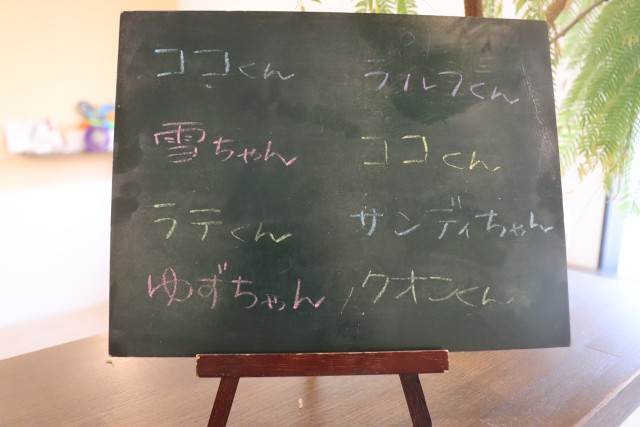 ココくん
雪ちゃん
ラテくん
ゆずちゃん
ラルフくん
ココくん
サンディちゃん
クオンくん